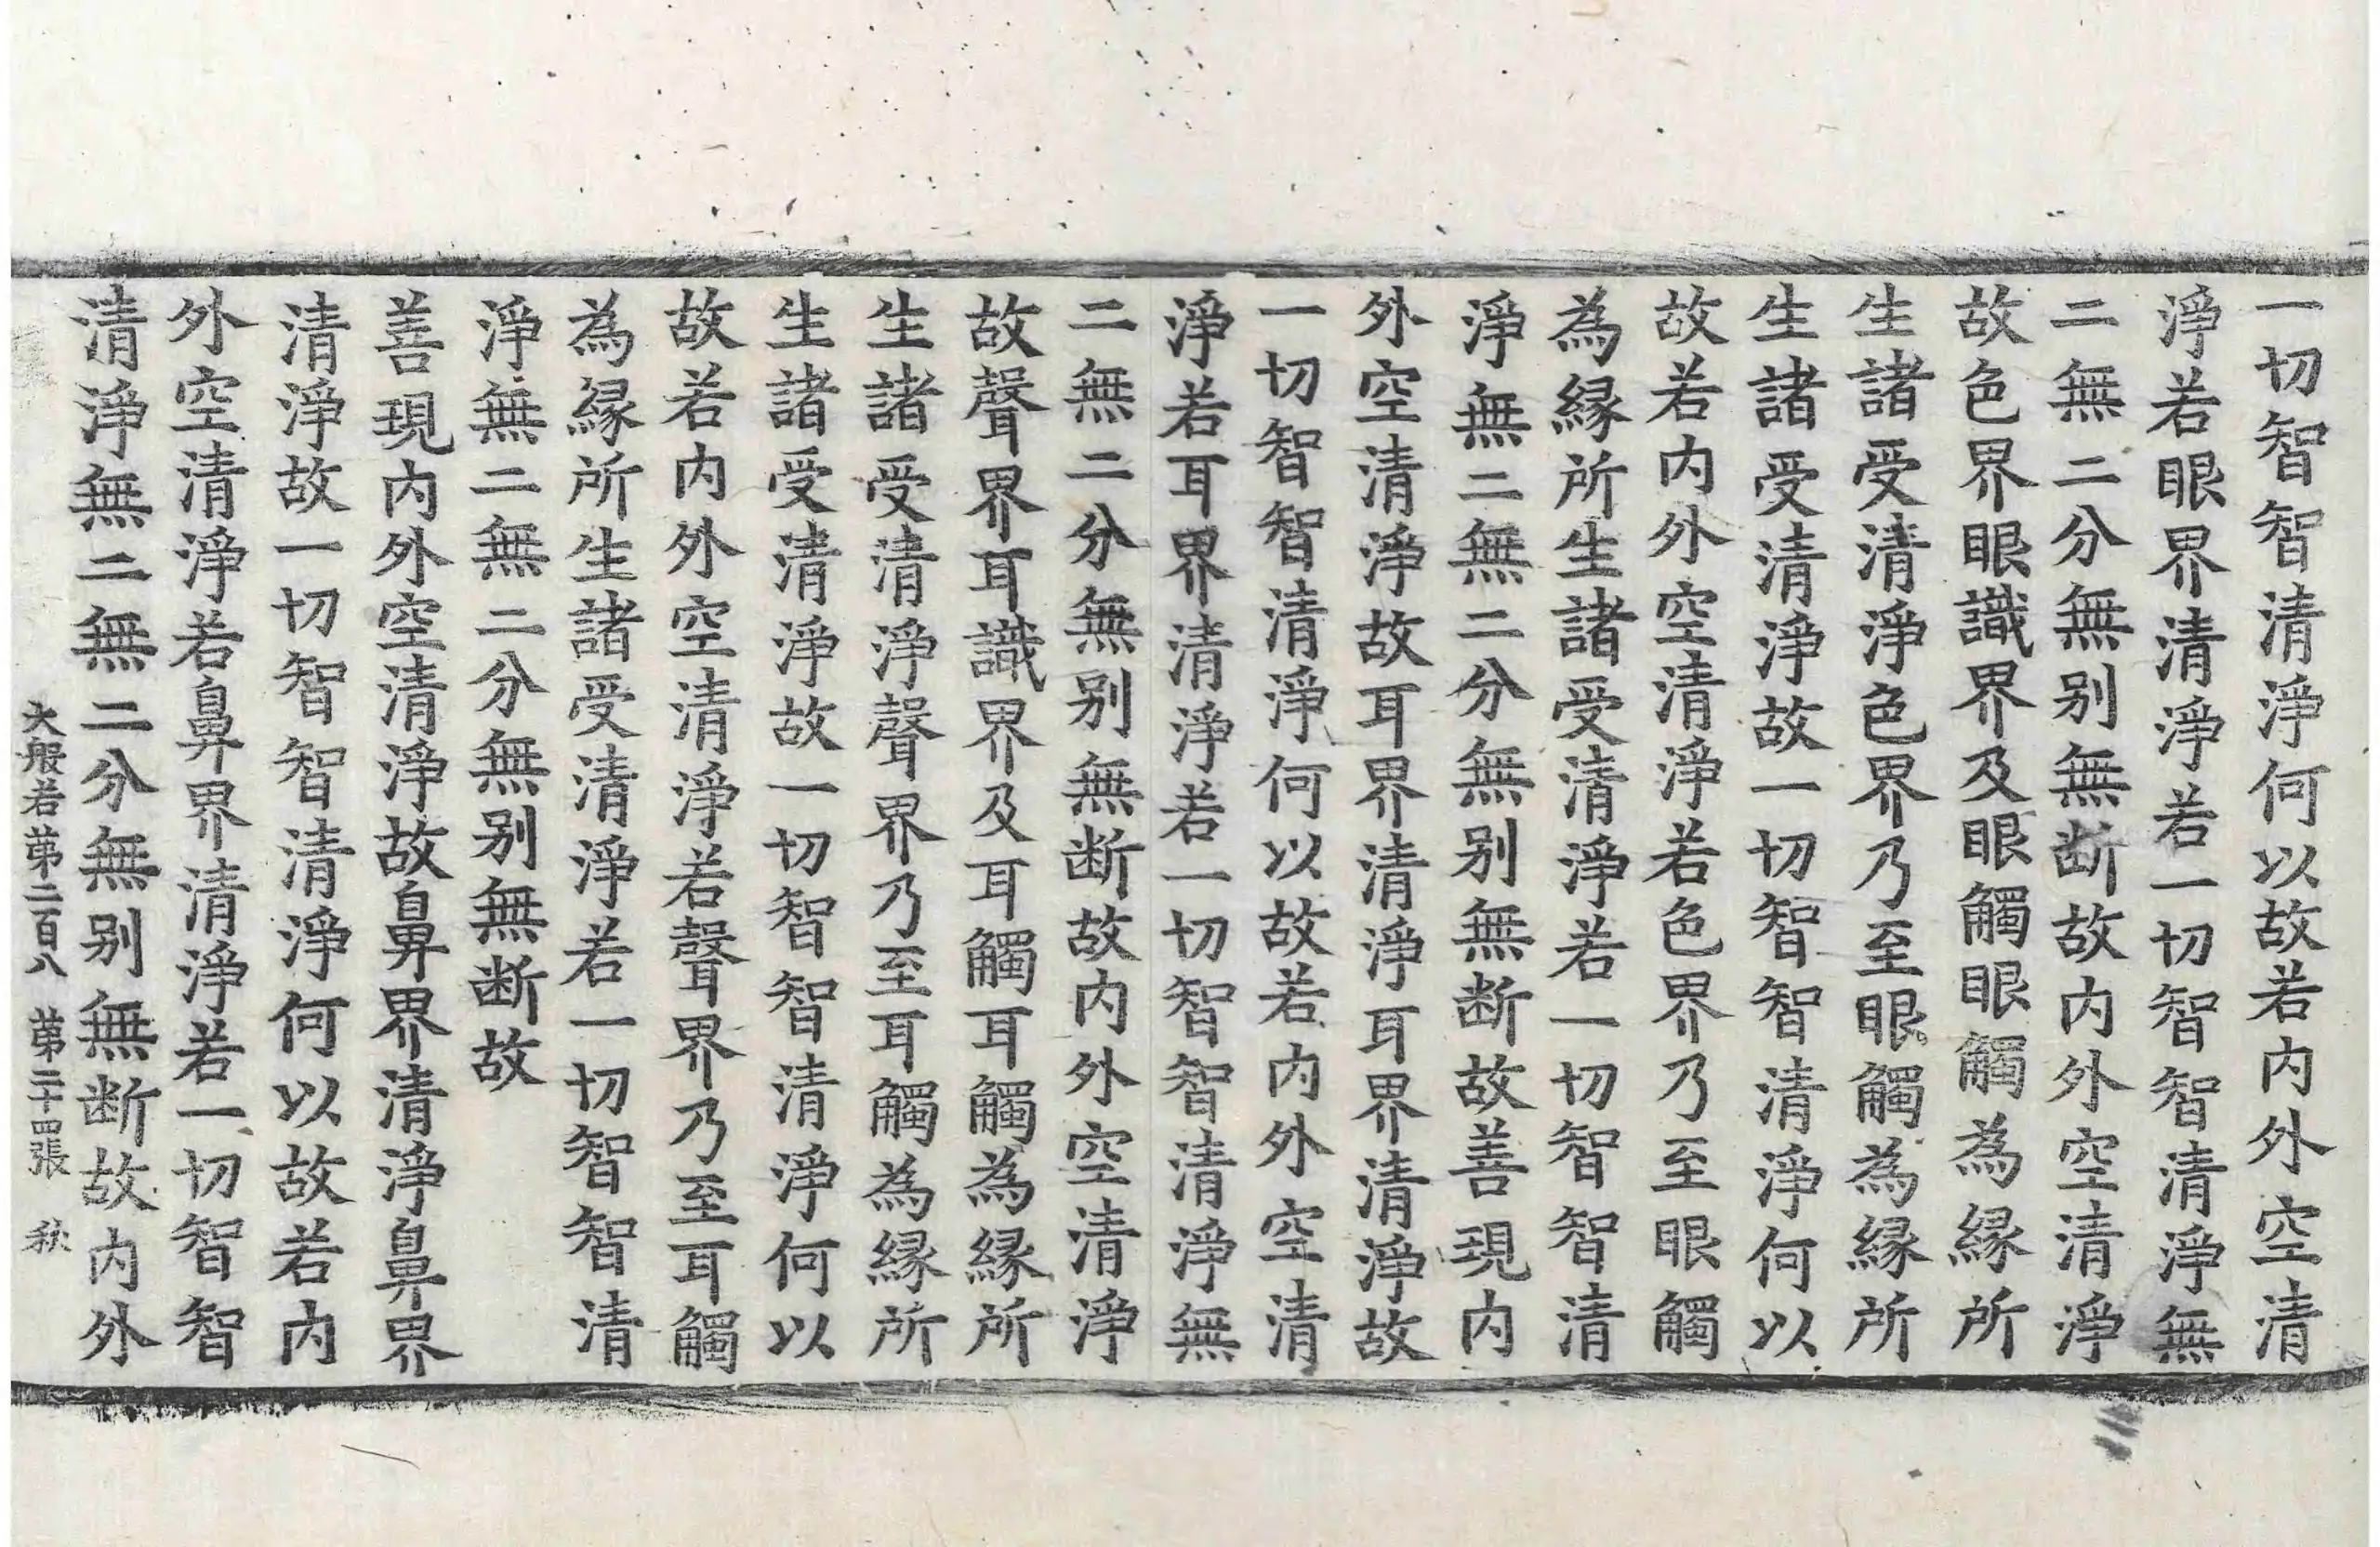 一切智智清淨何以故若内外空清
淨若眼界清淨若一切智智清淨無
二無二分無别無断故内外空清淨
故色界眼識界及眼觸眼觸為縁所
生諸受清淨色界乃至眼觸為縁所
生諸受清淨故一切智智清淨何以
故若内外空清淨若色界乃至眼觸
為縁所生諸受清淨若一切智智清
淨無二無二分無别無断故善現内
外空清淨故耳界清淨耳界清淨故
一切智智清淨何以故若内外空清
淨若耳界清淨若一切智智清淨無
二無二分無别無断故内外空清淨
故聲界耳識界及耳觸耳觸為縁所
生諸受清淨聲界乃至耳觸為縁所
生諸受清淨故一切智智清淨何以
故若内外空清淨若聲界乃至耳觸
為縁所生諸受清淨若一切智智清
淨無二無二分無别無断故
善現内外空清淨故鼻界清淨鼻界
清淨故一切智智清淨何以故若内
外空清淨若鼻界清淨若一切智智
清淨無二無二分無别無断故内外
大般若苐二百八 苐二十四張 秋